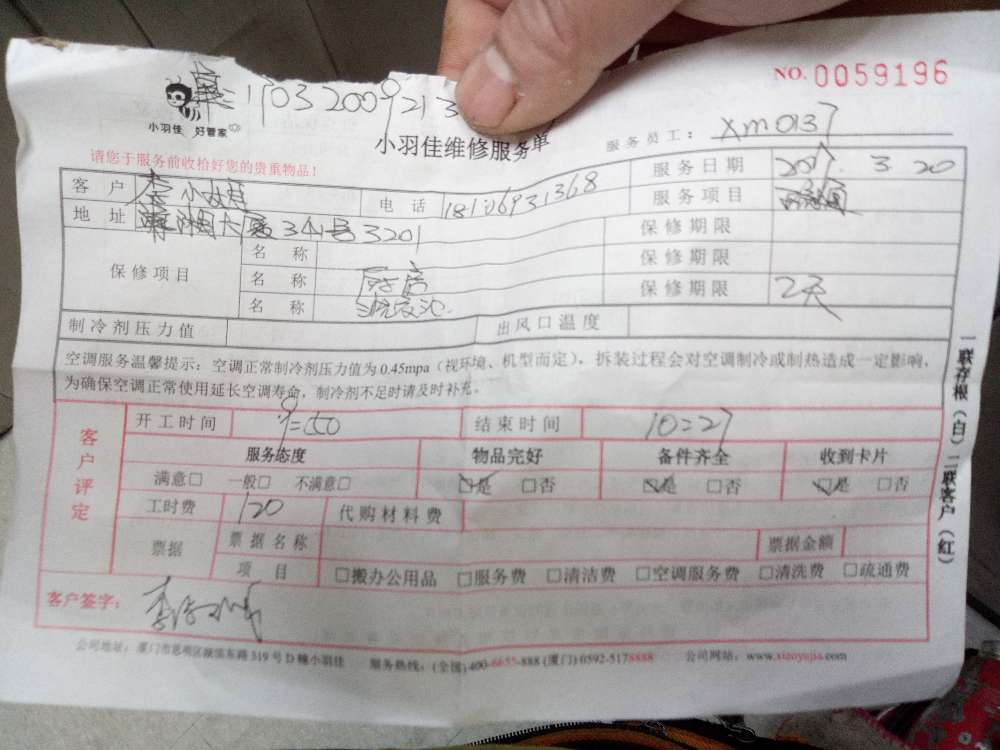 17032009213
NO. 0059196
小羽佳 好管家
小羽佳维修服务单
服务员工: xm0137
请您于服务前收拾好您的贵重物品!
客户 小姐 电话 18106931368 服务日期 3.20
地址 大厦34号3201 服务项目
保修项目 名称 保修期限
名称 厨房 保修期限
名称 洗菜池 保修期限 2天
制冷剂压力值 出风口温度
空调服务温馨提示:空调正常制冷剂压力值为0.45mpa(视环境、机型而定),拆装过程会对空调制冷或制热造成一定影响,
为确保空调正常使用延长空调寿命,制冷剂不足时请及时补充。
客户评定
开工时间 结束时间 10=27
服务态度 物品完好 备件齐全 收到卡片
满意□ 一般□ 不满意□ ☑是 □否 ☑是 □否 ☑是 □否
工时费 120 代购材料费
票据 票据名称 票据金额
项目 □搬办公用品 □服务费 □清洁费 □空调服务费 □清洗费 □疏通费
客户签字:
公司地址:厦门市思明区湖滨东路319号D幢小羽佳 服务热线:(全国)400-6655-888 (厦门) 0592-5178888 公司网站:www.xiaoyujia.com
一联存根(白)二联客户(红)